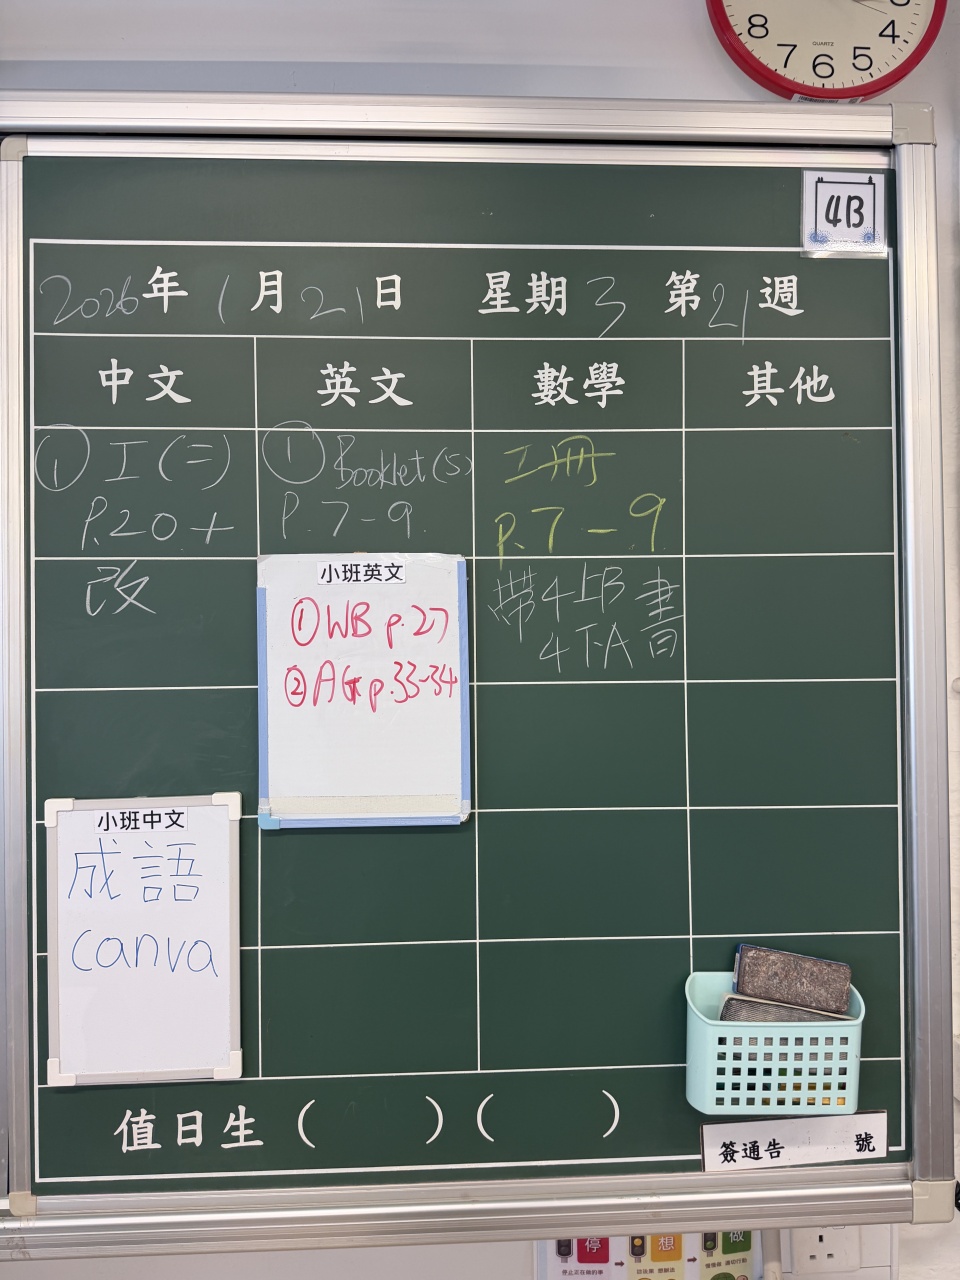 8 7 6 5 4
QUARTZ
4B
2026年1月21日 星期3 第21週
中文 英文 數學 其他
① 工(二)
P.20+
改
① Booklet(5)
P.7-9.
工冊
P.7-9
帶4上B書
4下A
小班英文
①WB p.27
②AG p.33-34
小班中文
成語
canva
值日生( )( )
簽通告 號
停 想 做